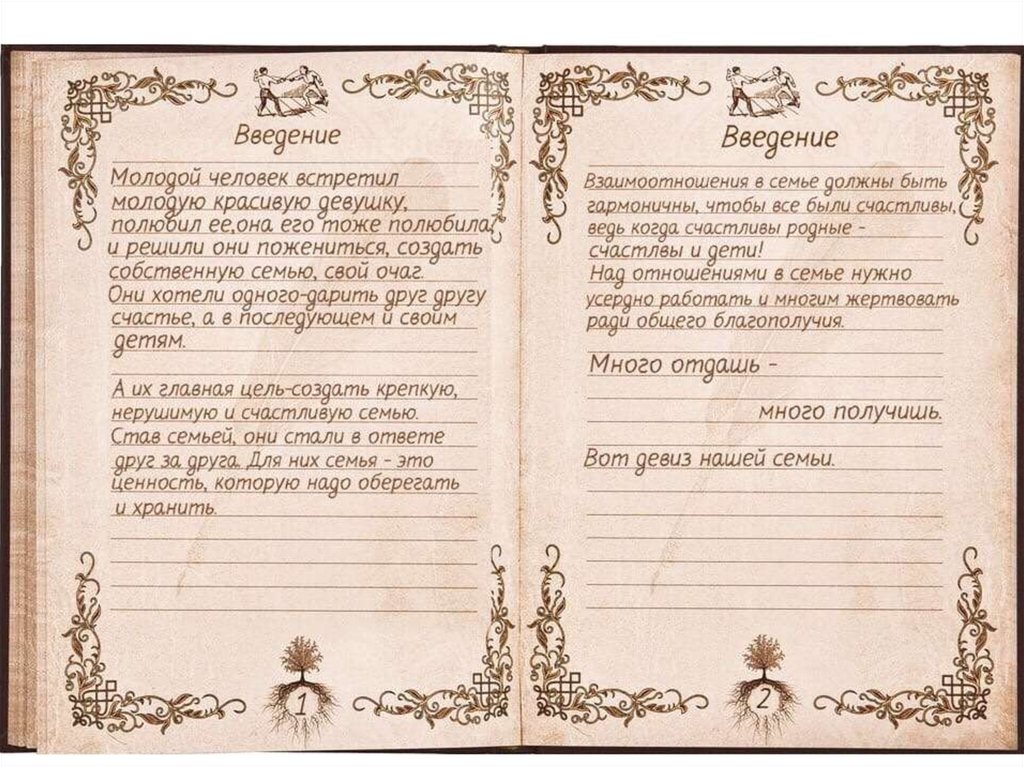 Введение
Молодой человек встретил
молодую красивую девушку,
полюбил ее,она его тоже полюбила,
и решили они пожениться, создать
собственную семью, свой очаг.
Они хотели одного-дарить друг другу
счастье, а в последующем и своим
детям.
А их главная цель-создать крепкую,
нерушимую и счастливую семью.
Став семьей, они стали в ответе
друг за друга. Для них семья - это
ценность, которую надо оберегать
и хранить.
1
Введение
Взаимоотношения в семье должны быть
гармоничны, чтобы все были счастливы,
ведь когда счастливы родные -
счастлвы и дети!
Над отношениями в семье нужно
усердно работать и многим жертвовать
ради общего благополучия.
Много отдашь -
много получишь.
Вот девиз нашей семьи.
2